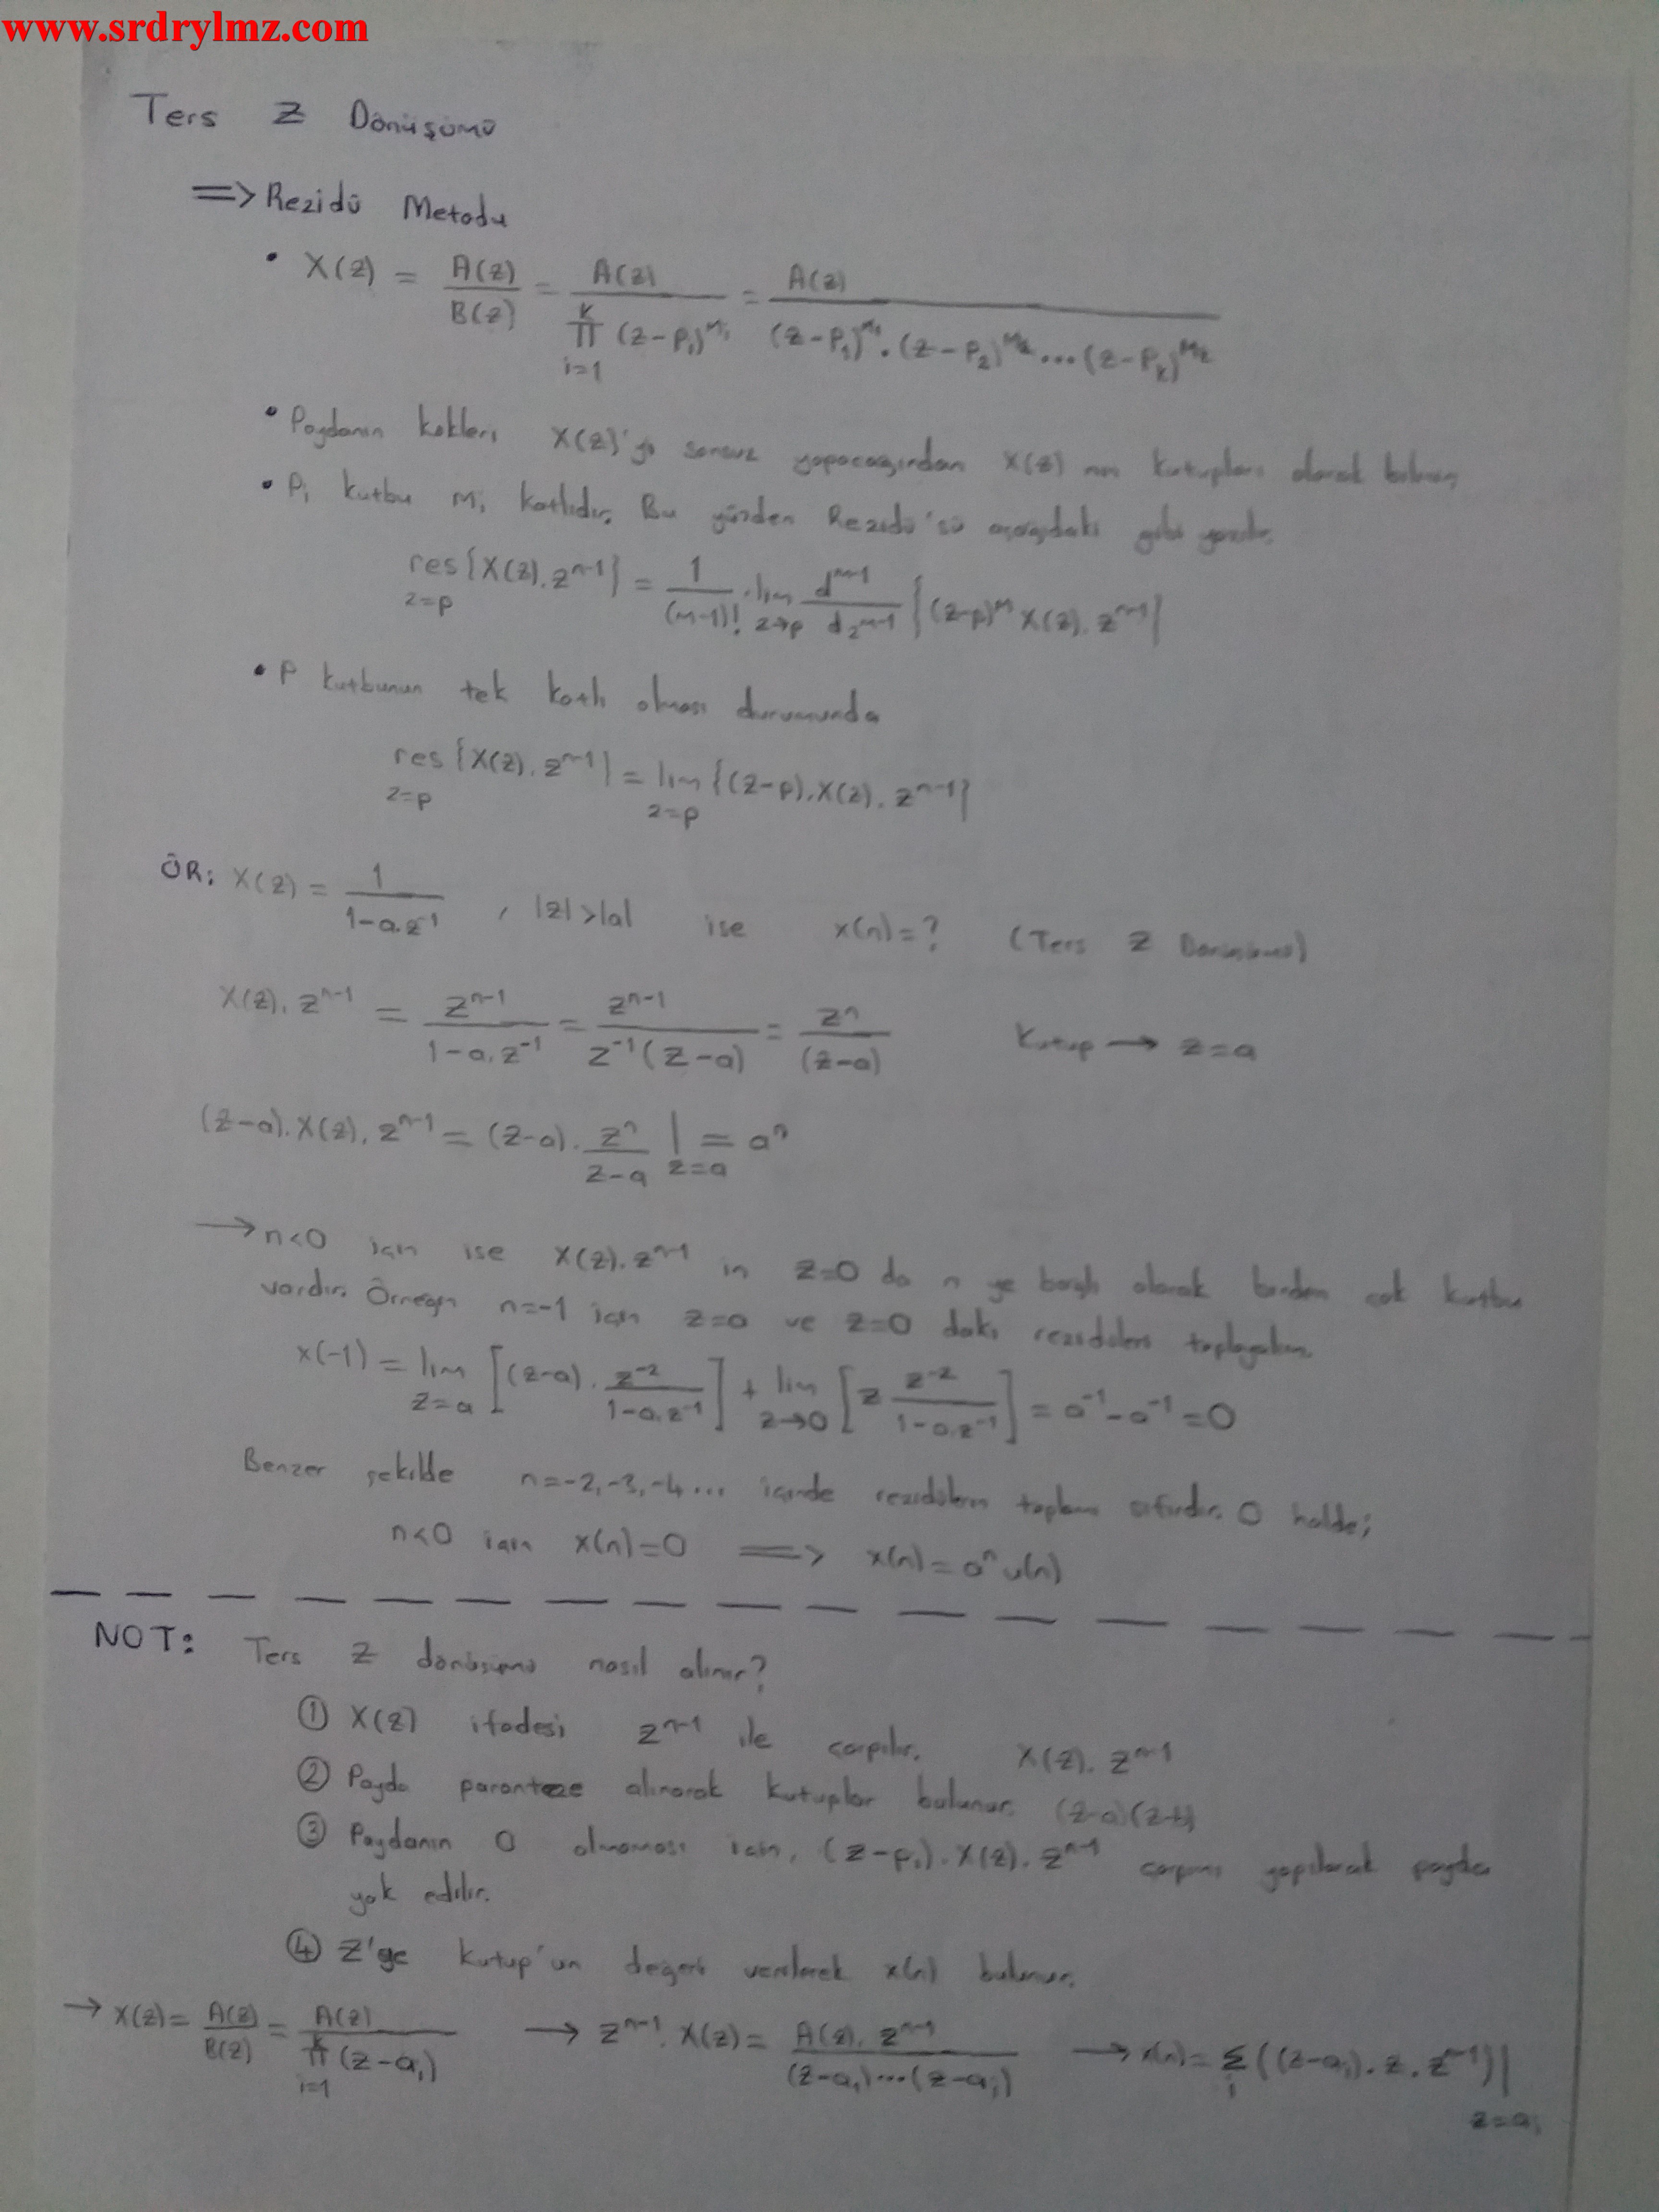 www.srdrylmz.com
Ters Z Dönüşümü
=> Rezidü Metodu
• X(z) = A(z)/B(z) = A(z)/∏_{i=1}^{k} (z-p_i)^{m_i} = A(z)/((z-p_1)^{m_1}.(z-p_2)^{m_2}...(z-p_k)^{m_k})
• Paydanın kökleri X(z)'yi sonsuz yapacağından X(z) nin kutupları olarak bilinir,
• p_i kutbu m_i katlıdır. Bu yüzden Rezidü'sü aşağıdaki gibi yazılır.
res_{z=p}{X(z).z^{n-1}} = 1/(m-1)! . lim_{z→p} d^{m-1}/dz^{m-1} {(z-p)^m X(z).z^{n-1}}
• P kutbunun tek katlı olması durumunda
res_{z=p}{X(z).z^{n-1}} = lim_{z=p} {(z-p).X(z).z^{n-1}}
ÖR: X(z) = 1/(1-a.z^{-1}) , |z|>|a| ise x(n)=? (Ters Z Dönüşümü)
X(z).z^{n-1} = z^{n-1}/(1-a.z^{-1}) = z^{n-1}/(z^{-1}(z-a)) = z^n/(z-a) Kutup → z=a
(z-a).X(z).z^{n-1} = (z-a).z^n/(z-a) |_{z=a} = a^n
→ n<0 için ise X(z).z^{n-1} in z=0 da n ye bağlı olarak birden çok kutbu
vardır. Örneğin n=-1 için z=a ve z=0 daki rezidüleri toplayalım.
x(-1) = lim_{z=a} [(z-a).z^{-2}/(1-a.z^{-1})] + lim_{z→0} [z z^{-2}/(1-a.z^{-1})] = a^{-1}-a^{-1}=0
Benzer şekilde n=-2,-3,-4... içinde rezidülerin toplamı sıfırdır. O halde;
n<0 için x(n)=0 ==> x(n)=a^n u(n)
NOT: Ters Z dönüşümü nasıl alınır?
① X(z) ifadesi z^{n-1} ile çarpılır. X(z).z^{n-1}
② Payda paranteze alınarak kutuplar bulunur. (z-a)(z-b)
③ Paydanın 0 olmaması için, (z-p_i).X(z).z^{n-1} çarpımı yapılarak payda
yok edilir.
④ Z'ye kutup'un değeri verilerek x(n) bulunur.
→ X(z) = A(z)/B(z) = A(z)/∏_{i=1}^{k} (z-a_i) → z^{n-1}.X(z) = A(z).z^{n-1}/((z-a_1)...(z-a_i)) → x(n) = Σ_i ((z-a_i).z.z^{n-1})|_{z=a_i}